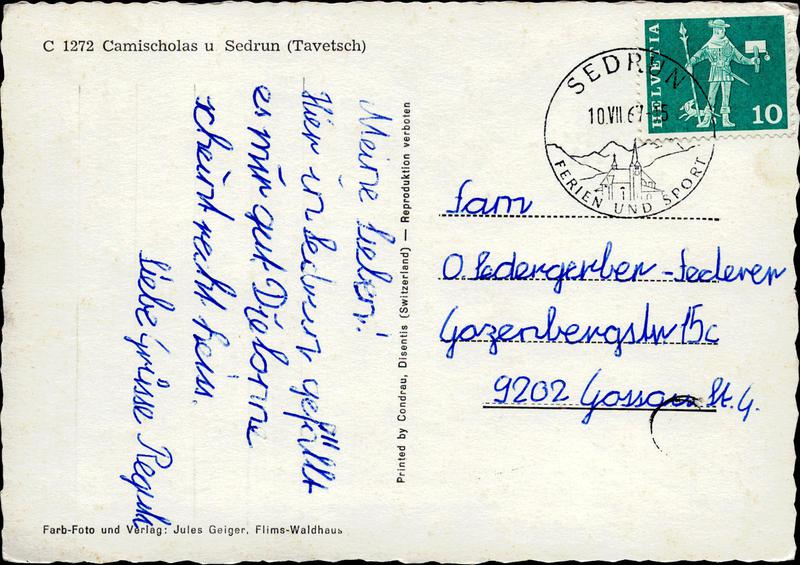 C 1272 Camischolas u Sedrun (Tavetsch)
Meine Lieben!
Hier in Sedrun gefällt
es mir gut Die Sonne
scheint recht heiss.
Liebe Grüsse Regula
Farb-Foto und Verlag: Jules Geiger, Flims-Waldhaus
Printed by Condrau, Disentis (Switzerland) — Reproduktion verboten
HELVETIA
10
SEDRUN
10.VII.67-15
FERIEN UND SPORT
Fam
O. Ledergerber-Federer
Gozenbergstr 15c
9202 Gossau St. G.